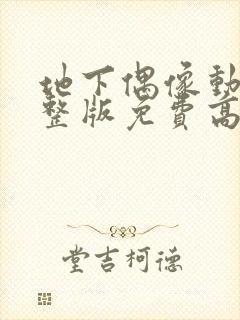 地下偶像動
整版免費高
堂吉柯德